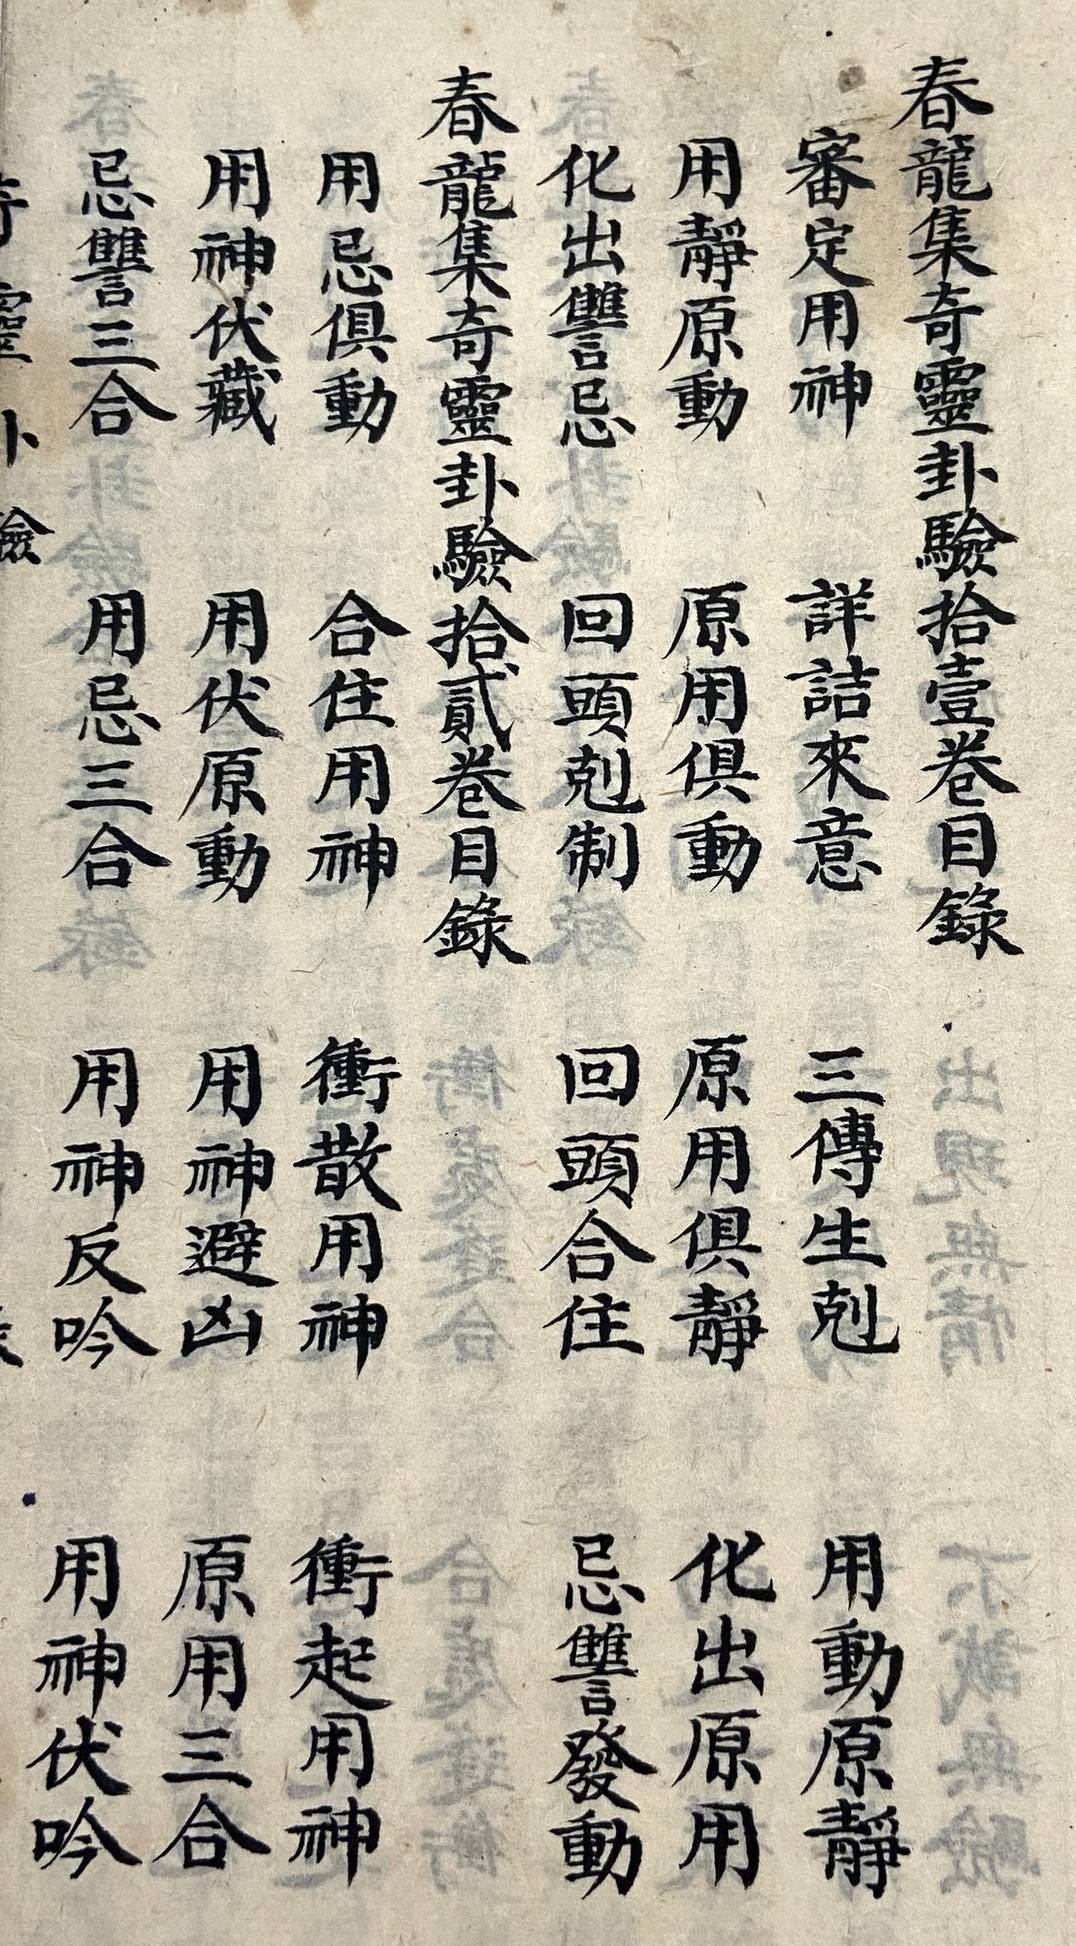 春龍集奇靈卦驗拾壹卷目錄
審定用神 詳詰來意 三傳生剋 用動原靜
用靜原動 原用俱動 原用俱靜 化出原用
化出讐忌 回頭剋制 回頭合住 忌讐發動
春龍集奇靈卦驗拾貳卷目錄
用忌俱動 合住用神 衝散用神 衝起用神
用神伏藏 用伏原動 用神避凶 原用三合
忌讐三合 用忌三合 用神反吟 用神伏吟